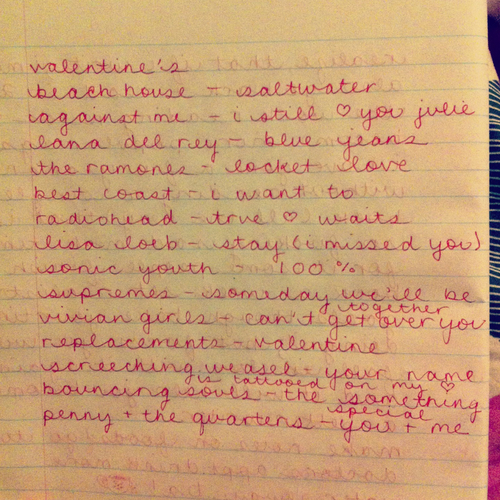 valentine's
beach house - saltwater
against me - i still ♡ you julie
lana del rey - blue jeans
the ramones - locket love
best coast - i want to
radiohead - true ♡ waits
lisa loeb - stay (i missed you)
sonic youth - 100%
supremes - someday we'll be together
vivian girls - can't get over you
replacements - valentine
screeching weasel - your name is tattooed on my ♡
bouncing souls - the something special
penny + the quarters - you + me